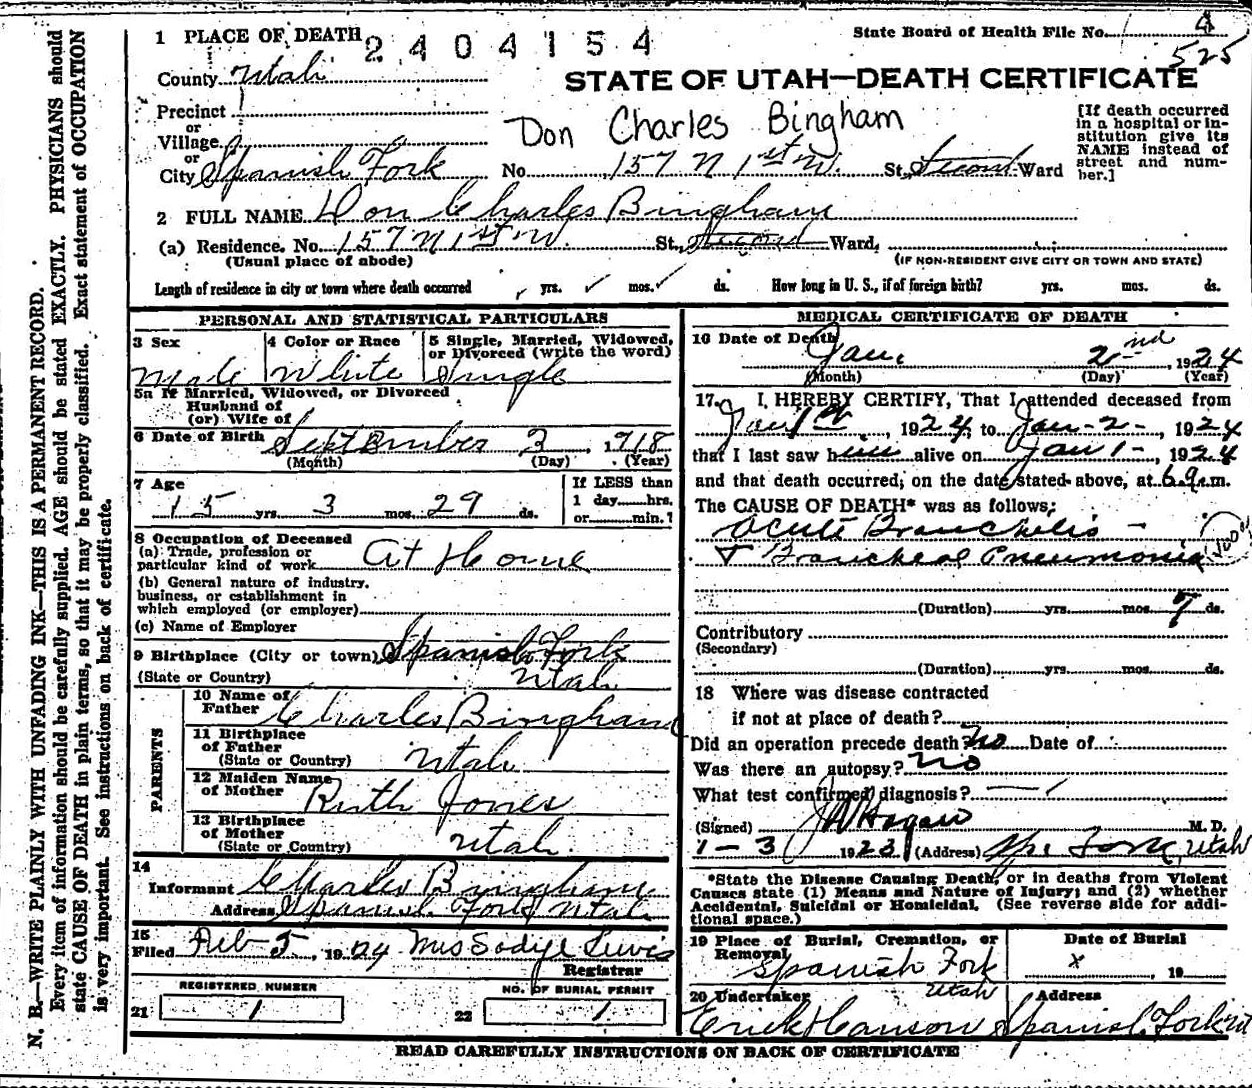 1 PLACE OF DEATH
2404154
State Board of Health File No. 4
525
County Utah
STATE OF UTAH—DEATH CERTIFICATE
Precinct
or
Village
or
City Spanish Fork
Don Charles Bingham
No. 157 N 1st W. St. Second Ward
[If death occurred
in a hospital or in-
stitution give its
NAME instead of
street and num-
ber.]
2 FULL NAME Don Charles Bingham
(a) Residence. No. 157 N 1st W. St. Second Ward,
(Usual place of abode)
(IF NON-RESIDENT GIVE CITY OR TOWN AND STATE)
Length of residence in city or town where death occurred yrs. mos. ds. How long in U. S., if of foreign birth? yrs. mos. ds.
PERSONAL AND STATISTICAL PARTICULARS
3 Sex
Male
4 Color or Race
White
5 Single, Married, Widowed,
or Divorced (write the word)
Single
5a If Married, Widowed, or Divorced
Husband of
(or) Wife of
6 Date of Birth September 3, 1918
(Month) (Day) (Year)
7 Age
15 yrs. 3 mos. 29 ds.
If LESS than
1 day....hrs.
or........min.?
8 Occupation of Deceased
(a) Trade, profession or
particular kind of work At Home
(b) General nature of industry,
business, or establishment in
which employed (or employer)
(c) Name of Employer
9 Birthplace (City or town) Spanish Fork
(State or Country) Utah
PARENTS
10 Name of
Father Charles Bingham
11 Birthplace
of Father
(State or Country) Utah
12 Maiden Name
of Mother Ruth Jones
13 Birthplace
of Mother
(State or Country) Utah.
14
Informant Charles Bingham
Address Spanish Fork Utah
15
Filed Feb 5, 1924 Mrs Lewis
Registrar
REGISTERED NUMBER
21 1
NO. OF BURIAL PERMIT
22 1
MEDICAL CERTIFICATE OF DEATH
16 Date of Death
Jan. 2nd, 1924
(Month) (Day) (Year)
17. I HEREBY CERTIFY, That I attended deceased from
Jan 1st, 1924, to Jan-2-, 1924
that I last saw him alive on Jan 1-, 1924
and that death occurred, on the date stated above, at 6 a.m.
The CAUSE OF DEATH* was as follows:
Acute Bronchitis -
+ Broncheal Pneumonia
(Duration) yrs. mos. 7 ds.
Contributory
(Secondary)
(Duration) yrs. mos. ds.
18 Where was disease contracted
if not at place of death?
Did an operation precede death? no Date of
Was there an autopsy? No
What test confirmed diagnosis?
(Signed) J W Hagan M. D.
1-3 1923 (Address) Sp. Fork, Utah
*State the Disease Causing Death, or in deaths from Violent
Causes state (1) Means and Nature of Injury; and (2) whether
Accidental, Suicidal or Homicidal. (See reverse side for addi-
tional space.)
19 Place of Burial, Cremation, or
Removal
Spanish Fork
Utah
Date of Burial
x , 19
20 Undertaker
Erick Hanson
Address
Spanish Fork Ut
READ CAREFULLY INSTRUCTIONS ON BACK OF CERTIFICATE
N. B.—WRITE PLAINLY WITH UNFADING INK—THIS IS A PERMANENT RECORD.
Every item of information should be carefully supplied. AGE should be stated EXACTLY. PHYSICIANS should
state CAUSE OF DEATH in plain terms, so that it may be properly classified. Exact statement of OCCUPATION
is very important. See instructions on back of certificate.